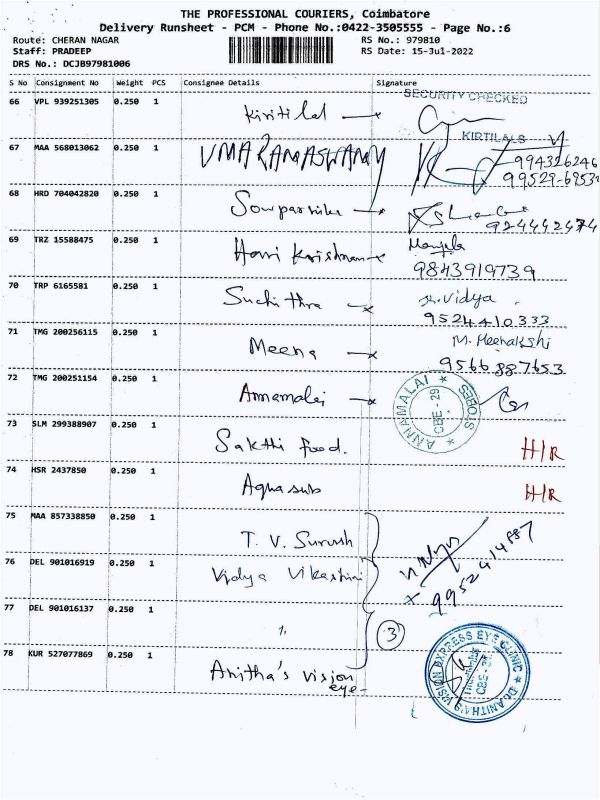 THE PROFESSIONAL COURIERS, Coimbatore
Delivery Runsheet - PCM - Phone No.:0422-3505555 - Page No.:6
Route: CHERAN NAGAR RS No.: 979810
Staff: PRADEEP RS Date: 15-Jul-2022
DRS No.: DCJB97981006
S No Consignment No Weight PCS Consignee Details Signature
SECURITY CHECKED
66 VPL 939251305 0.250 1 Kiritilal
KIRTILALS
67 MAA 568013062 0.250 1 UMA RAMASWAMY
994326246
99529-6953
68 HRD 704042820 0.250 1 Sowparnika
924442474
69 TRZ 15588475 0.250 1 Hari Krishnan Manjula
9843919739
70 TRP 6165581 0.250 1 Suchithra Vidya
9524410333
71 TMG 200256115 0.250 1 Meena M. Meenakshi
9566887653
72 TMG 200251154 0.250 1 Annamalai
ANNAMALAI CBE - 29
73 SLM 299388907 0.250 1 Sakthi food. H/R
74 HSR 2437850 0.250 1 Aquasub H/R
75 MAA 857338850 0.250 1 T. V. Suresh
9952414887
76 DEL 901016919 0.250 1 Vidya Vikashini
77 DEL 901016137 0.250 1 3
78 KUR 527077869 0.250 1 Anitha's vision
eye-
Dr.ANITHA'S VISION EXPRESS EYE CLINIC